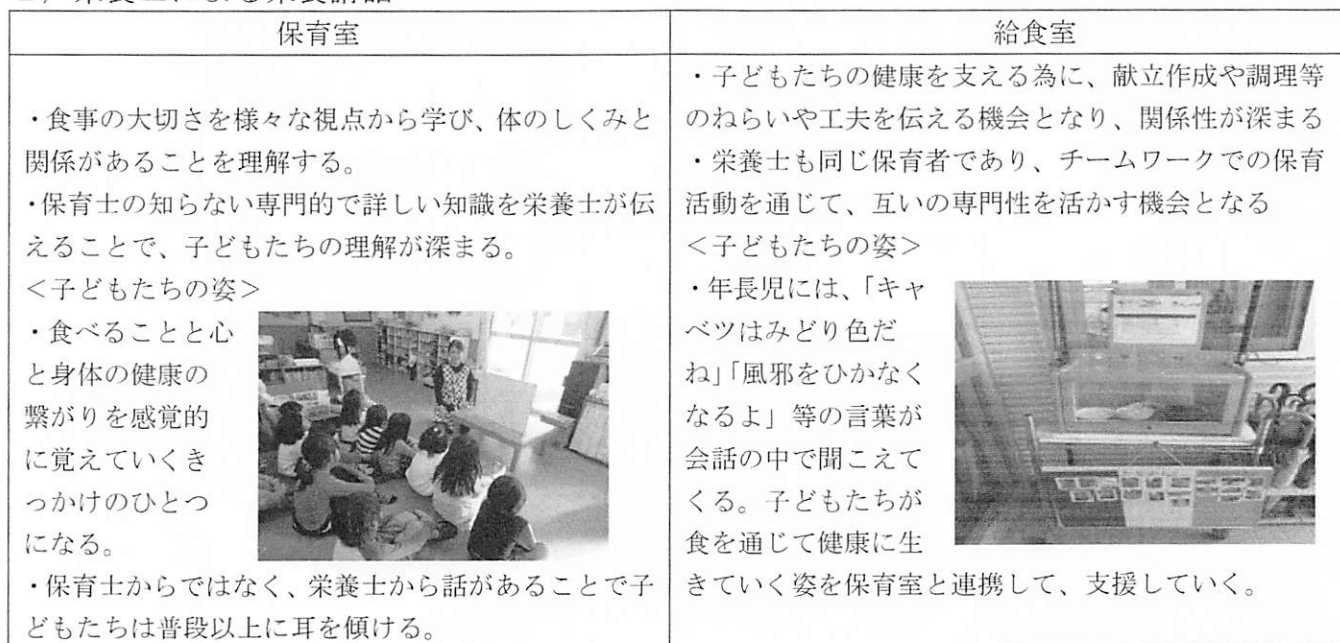 保育室
・食事の大切さを様々な視点から学び、体のしくみと
関係があることを理解する。
・保育士の知らない専門的で詳しい知識を栄養士が伝
えることで、子どもたちの理解が深まる。
＜子どもたちの姿＞
・食べることと心
と身体の健康の
繋がりを感覚的
に覚えていくき
っかけのひとつ
になる。
・保育士からではなく、栄養士から話があることで子
どもたちは普段以上に耳を傾ける。
給食室
・子どもたちの健康を支える為に、献立作成や調理等
のねらいや工夫を伝える機会となり、関係性が深まる
・栄養士も同じ保育者であり、チームワークでの保育
活動を通じて、互いの専門性を活かす機会となる
＜子どもたちの姿＞
・年長児には、「キャ
ベツはみどり色だ
ね」「風邪をひかなく
なるよ」等の言葉が
会話の中で聞こえて
くる。子どもたちが
食を通じて健康に生
きていく姿を保育室と連携して、支援していく。